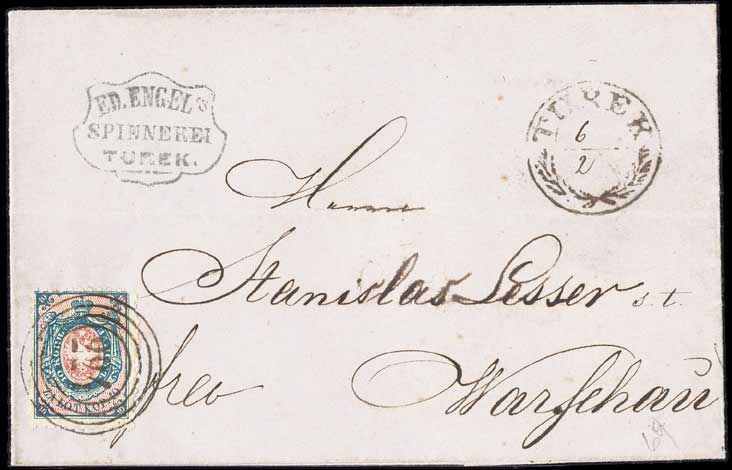 ED. ENGEL'S
SPINNEREI
TUREK.
TUREK
6
2
Herrn
Stanislas Lesser s. t.
frco
Warschau